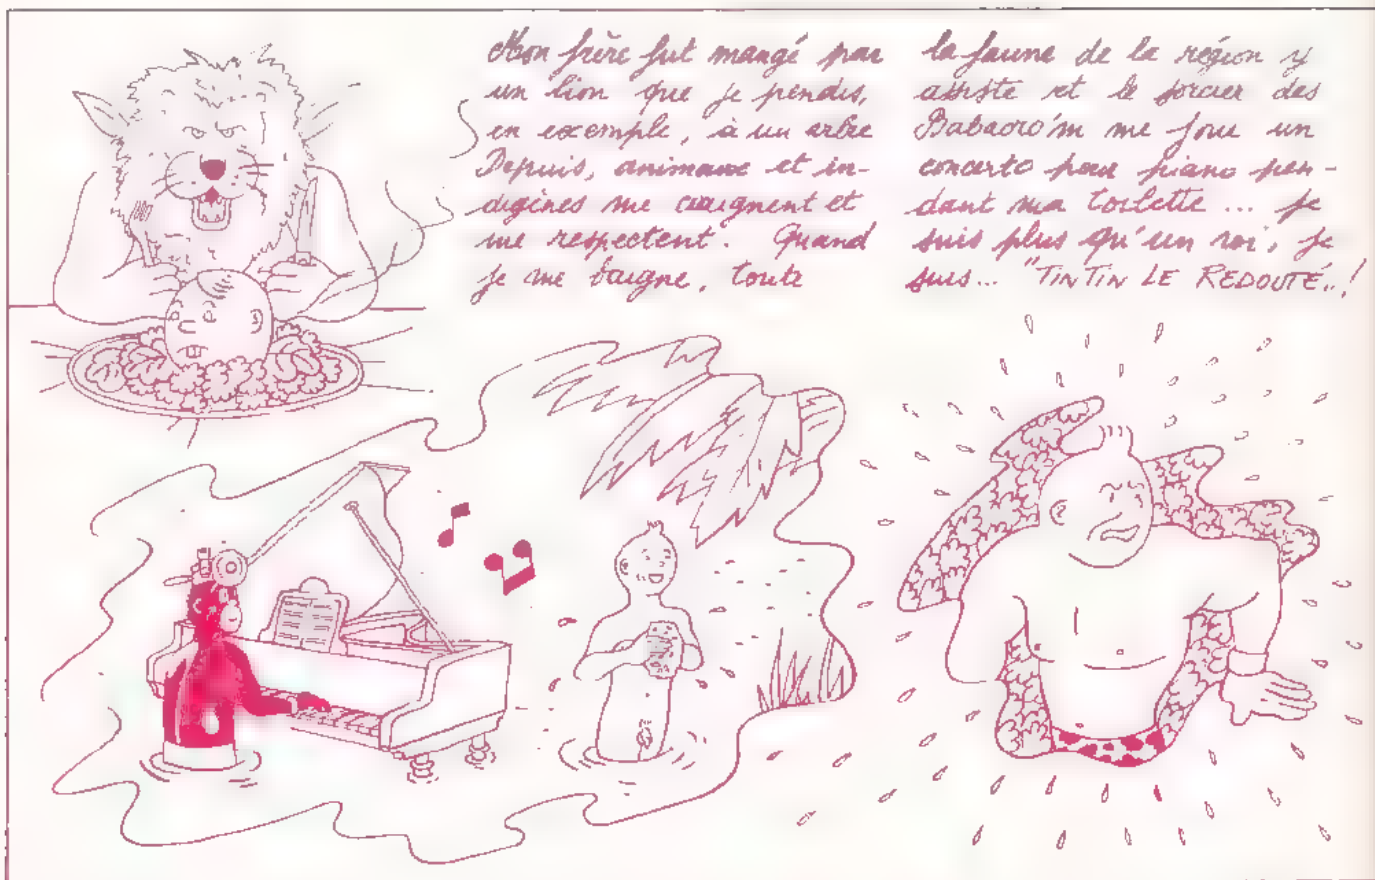 Mon frère fut mangé par
un lion que je pendis,
en exemple, à un arbre
Depuis, animaux et in-
digènes me craignent et
me respectent. Quand
je me baigne, toute
la faune de la région y
assiste et le sorcier des
Babaoro'm me joue un
concerto pour piano pen-
dant ma toilette ... je
suis plus qu'un roi, je
suis... "TINTIN LE REDOUTÉ"..!